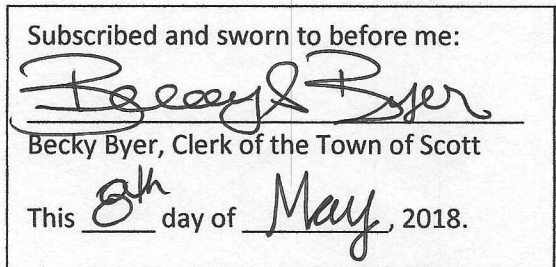 Subscribed and sworn to before me:
Becky S Byer
Becky Byer, Clerk of the Town of Scott
This 8th day of May, 2018.